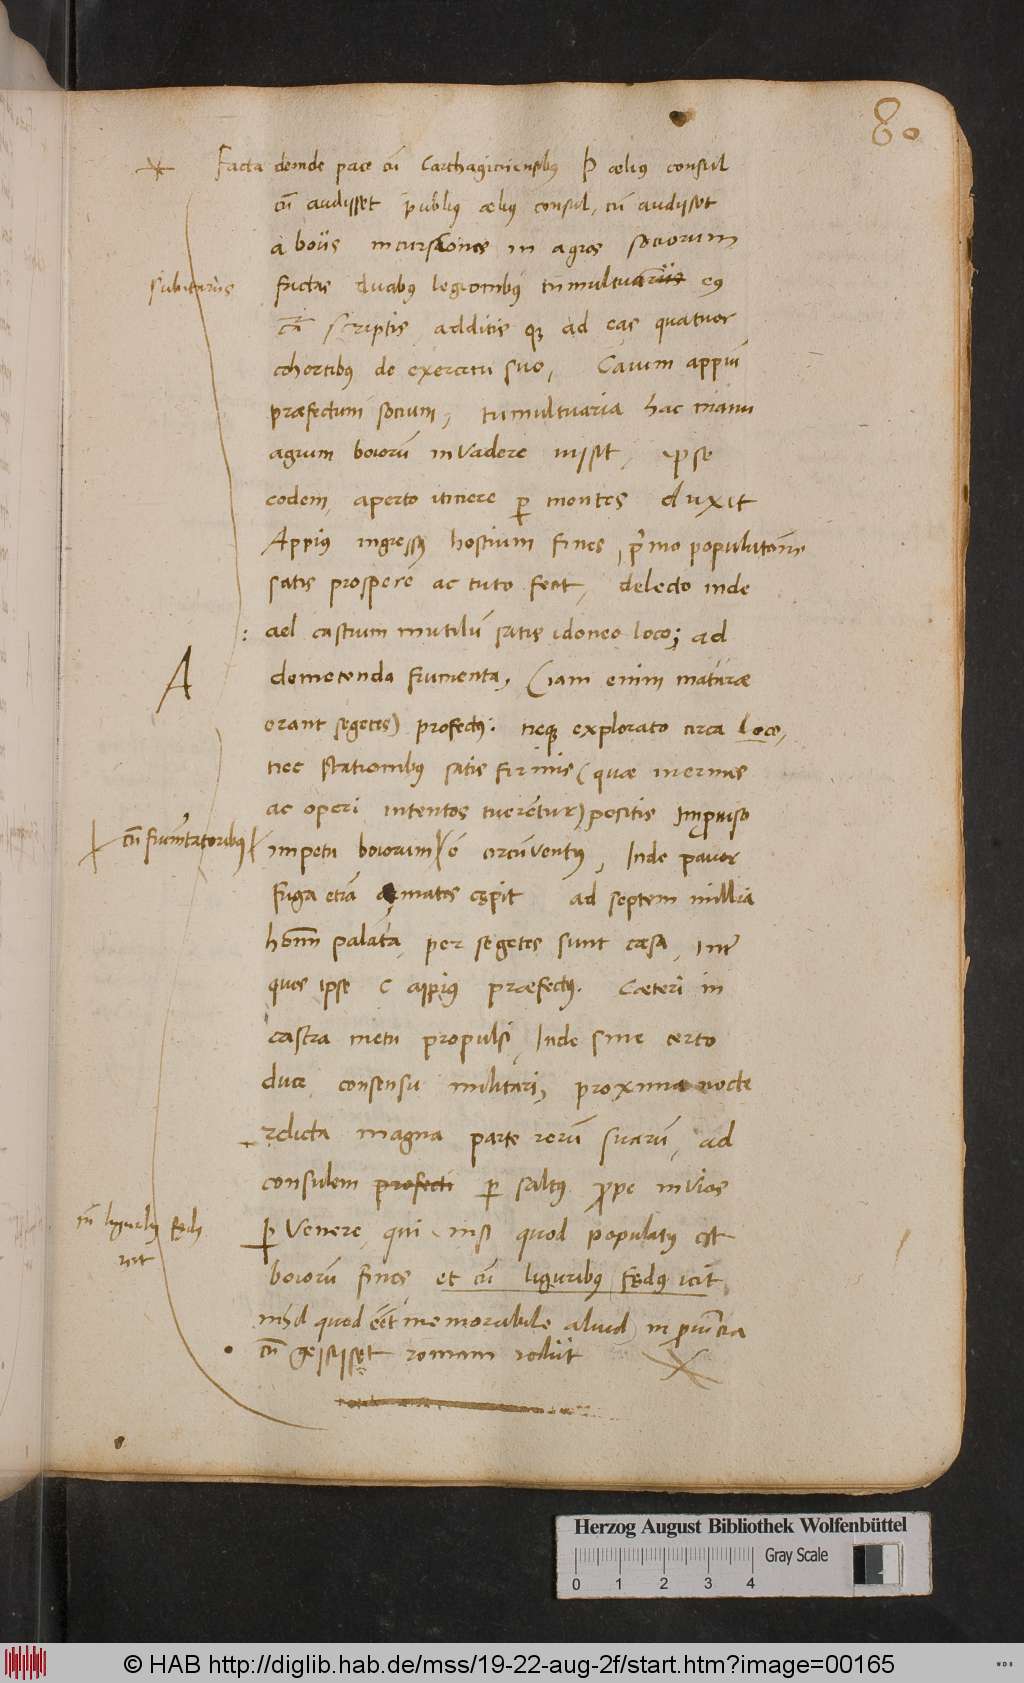 80
Facta deinde pace cū Carthaginiensibꝰ P ælius consul
cū audisset publius ælius consul, cū audisset
a boiis incursiones in agros sociorum
subitariis
factas duabꝰ legionibꝰ tumultuariis eꝰ
cā scriptis, additis qꝫ ad eas quatuor
cohortibꝰ de exercitu suo, Caium appiū
præfectum socium, tumultuaria hac manu
agrum boiorū invadere iussit, ipse
eodem, aperto itinere ꝑ montes duxit
Appius ingressꝰ hostium fines, pͥmo populationes
satis prospere ac tuto fecit, delecto inde
ad castrum mutilū satis idoneo loco; ad
A
demetenda frumenta, (iam enim maturæ
erant segetes) profectꝰ: neqꝫ explorato circa loco,
nec stationibus satis firmis (quæ inermes
ac operi intentos tuerentur) positis improuiso
cū frumētatoribꝰ
impetu boiorum ē circūventꝰ, Inde pavor
fuga etiā armatos cępit ad septem millia
hoīm palata, per segetes sunt cæsa, Inter
quos ipse C appius præfectꝰ. Cæteri in
castra metu propulsi, Inde sine certo
duce consensu militari, proxima nocte
relicta magna parte rerū suarū, ad
consulem profecti ꝑ saltꝰ prope invios
cū liguribꝰ fędus
icit
ꝑvenere, qui nisi quod populatꝰ est
boiorū fines, et cū liguribꝰ fędꝰ icit
nihil quod eēt memorabile aliud in prouīcia
cū gessisset romam rediit
Herzog August Bibliothek Wolfenbüttel
Gray Scale
0 1 2 3 4
© HAB http://diglib.hab.de/mss/19-22-aug-2f/start.htm?image=00165